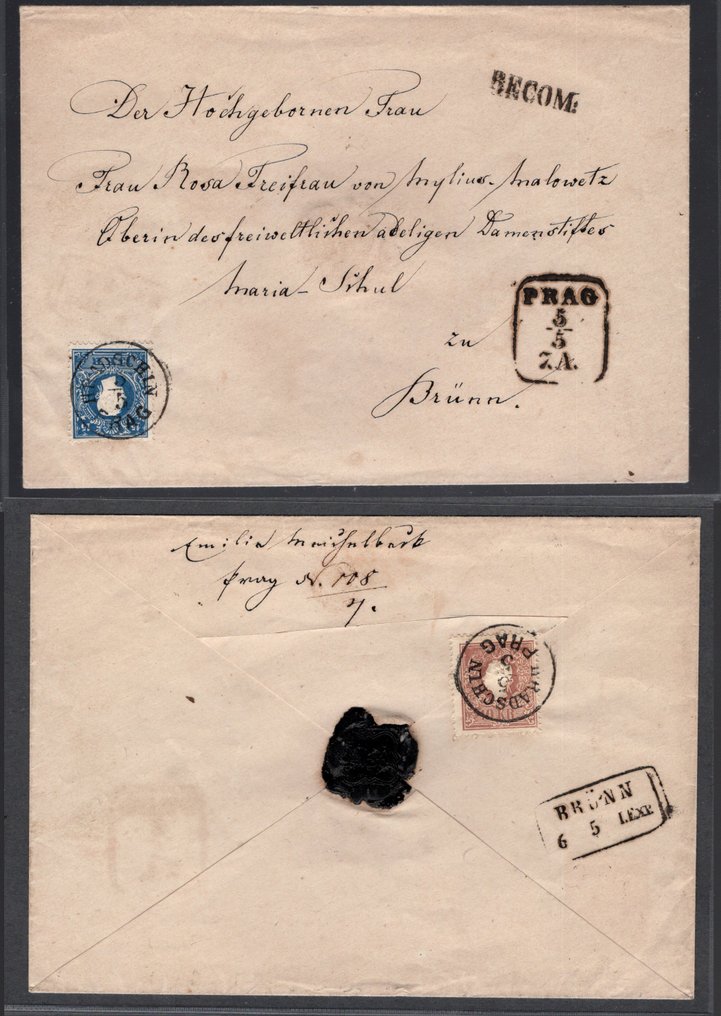 RECOM:
Der Hochgebornen Frau
Frau Rosa Freifrau von Mylius-Malowetz
Oberin des freiweltlichen adeligen Damenstiftes
Maria-Schul
zu
Brünn.
PRAG
5
5
7.A.
HRADSCHIN
5
PRAG
Emilie
Prag N. 108
PRAG
HRADSCHIN
5
5
BRÜNN
6 5 I.EXP.